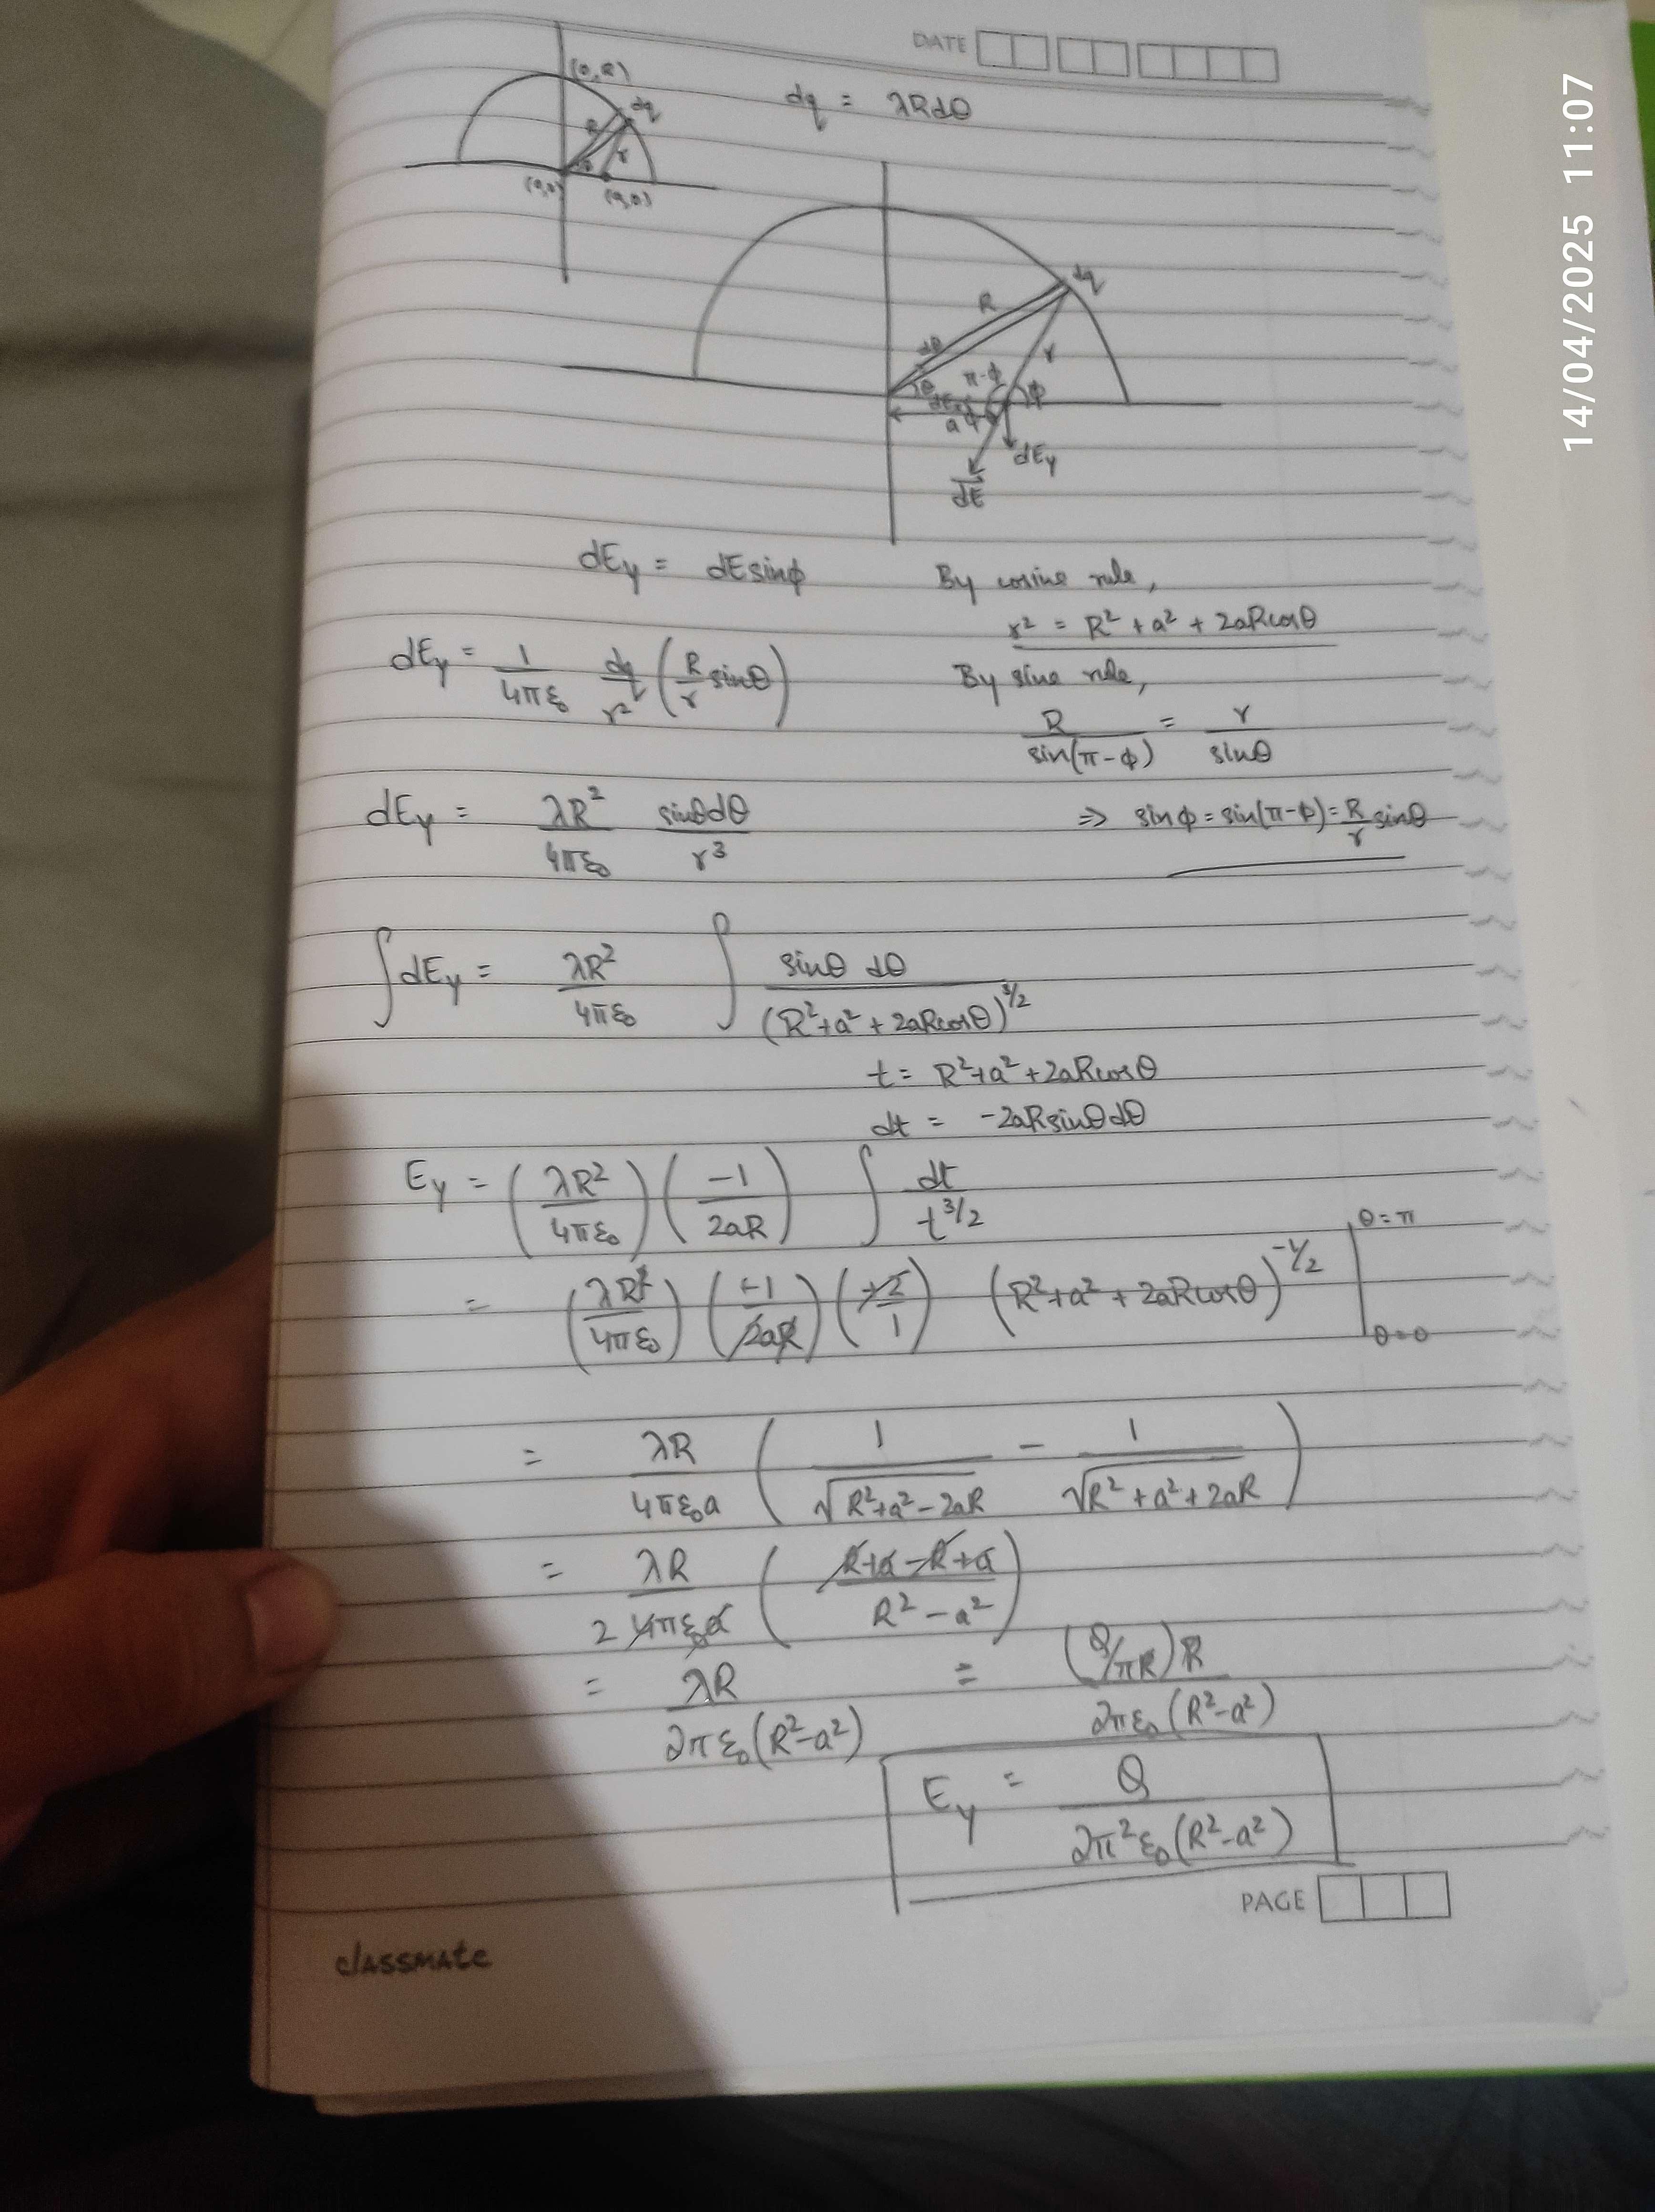 DATE
14/04/2025 11:07
(0,R)
dq
R
r
θ
(0,0)
(a,0)
dq = λRdθ
dq
R
dθ
r
θ
π-ϕ
ϕ
a
dE_y
dE
dE_y = dE sinϕ
By cosine rule,
r² = R² + a² + 2aRcosθ
dE_y = 1/4πε₀ dq/r² (R/r sinθ)
By sine rule,
R/sin(π-ϕ) = r/sinθ
dE_y = λR²/4πε₀ sinθdθ/r³
⇒ sinϕ = sin(π-ϕ) = R/r sinθ
∫dE_y = λR²/4πε₀ ∫ sinθ dθ/(R²+a²+2aRcosθ)^3/2
t = R²+a²+2aRcosθ
dt = -2aRsinθdθ
E_y = (λR²/4πε₀) (-1/2aR) ∫ dt/t^3/2
= (λR²/4πε₀) (+1/2aR) (+2/1) (R²+a²+2aRcosθ)^-1/2 |θ=π θ=0
= λR/4πε₀a (1/√R²+a²-2aR - 1/√R²+a²+2aR)
= λR/2 4πε₀a (R+a-R+a/R²-a²)
= λR/2πε₀(R²-a²) = (Q/πR)R/2πε₀(R²-a²)
E_y = Q/2π²ε₀(R²-a²)
PAGE
classmate